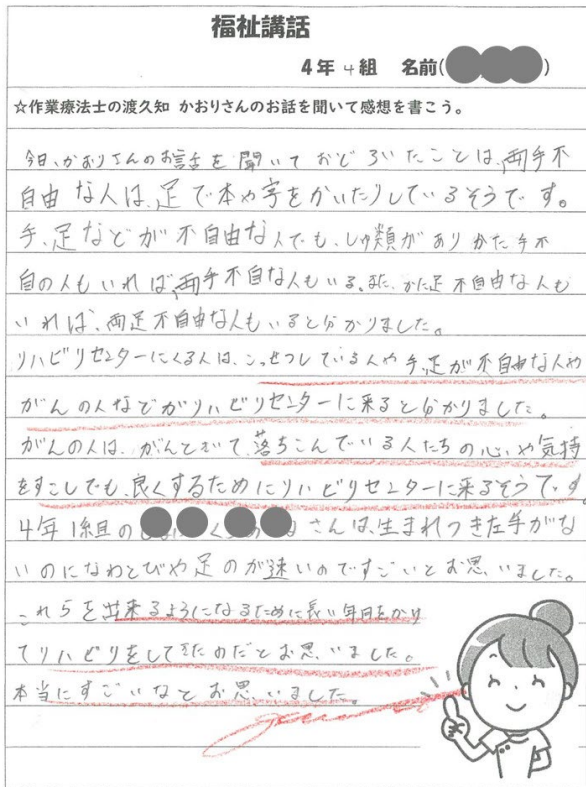 福祉講話
4年 4組 名前( )
☆作業療法士の渡久知 かおりさんのお話を聞いて感想を書こう。
今日、かおりさんのお話を聞いておどろいたことは、両手不
自由な人は、足で本や字をかいたりしているそうです。
手、足などが不自由な人でも、しゅ類がありかた手不
自の人もいれば、両手不自な人もいる。また、かた足不自由な人も
いれば、両足不自由な人もいると分かりました。
リハビリセンターにくる人は、こっせつしている人や手、足が不自由な人や
がんの人などがリハビリセンターに来ると分かりました。
がんの人は、がんときいて、落ちこんでいる人たちの心や気持
をすこしでも、良くするためにリハビリセンターに来るそうです。
4年1組の さんは、生まれつき左手がな
いのになわとびや足のが速いのですごいとお思いました。
これらを出来るようになるために長い年月をかけ
てリハビリをしてきたのだとお思いました。
本当にすごいなとお思いました。